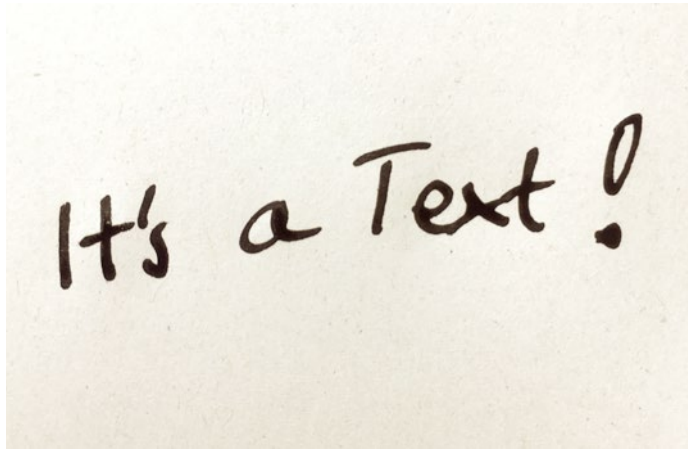 It's a Text!